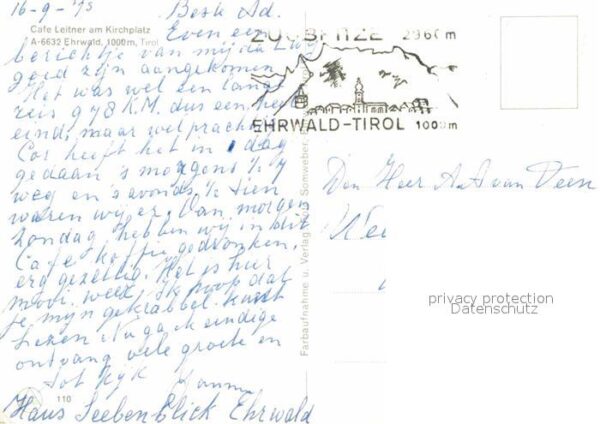 16-9-'73 Beste Ad.
Cafe Leitner am Kirchplatz
A-6632 Ehrwald, 1000 m, Tirol
Even een
berichtje van mij da wy
goed zijn aangekomen
Het was wel een lange
reis 978 K.M. dus een heel
eind, maar wel prachtig
Cor heeft het in 1 dag
gedaan 's morgens ½ 7
weg en 's avonds ½ tien
waren wy er. Van morgen
Zondag hebben wij in dit
Cafe koffie gedronken.
erg gezellig. Het is hier
mooi weer, Ik hoop dat
je mijn gekrabbel kunt
lezen Nu ga ik eindige
ontvang vele groete en
tot kijk
110
Haus Seebenblick Ehrwald
Farbaufnahme u. Verlag
ZUGSPITZE 2960 m
EHRWALD-TIROL 1000 m
Den Heer A.A. van Veen
privacy protection
Datenschutz